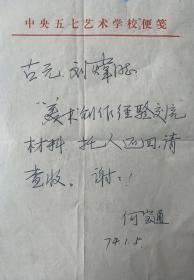 中央五七艺术学校便笺
古元、刘炜
"美术创作经验交流
材料 托人送回,请
查收。谢谢!
何宝通
74.1.5.